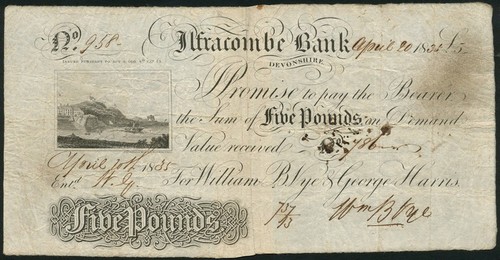 No. 958 Ilfracombe Bank April 20 1835 £5
DEVONSHIRE
I Promise to pay the Bearer
the Sum of Five Pounds on Demand
Value received
April 20th 1835
Entd. For William B. Pye & George Harris.
Five Pounds Wm B Pye